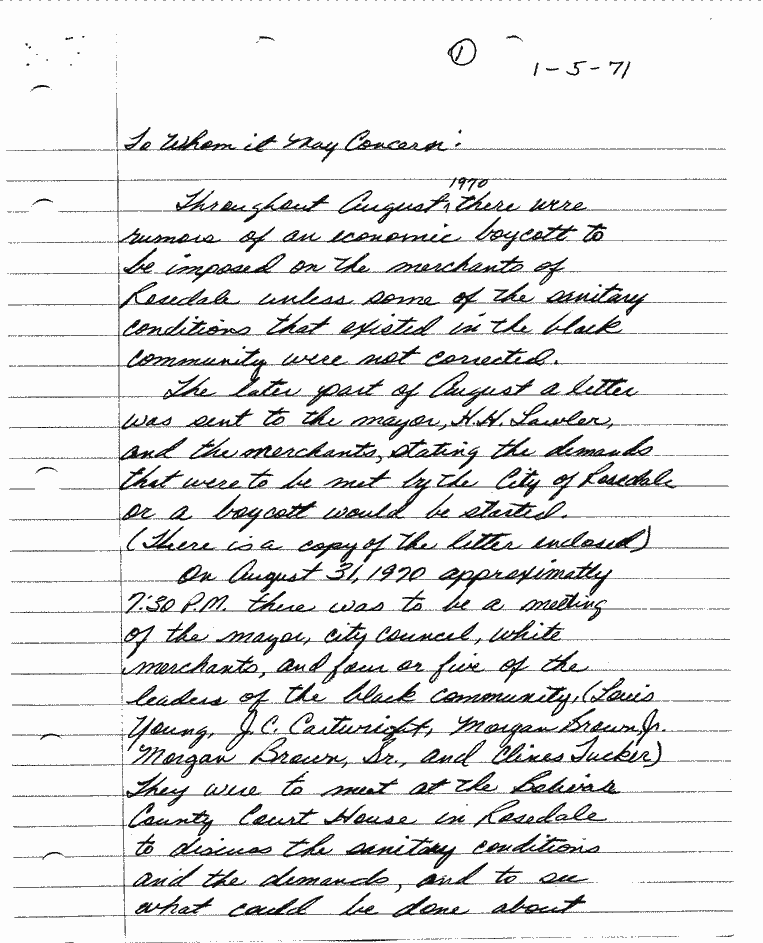 1
1-5-71
To Whom it May Concern:
1970
Throughout August, there were
rumors of an economic boycott to
be imposed on the merchants of
Rosedale unless some of the sanitary
conditions that existed in the black
community were not corrected.
The later part of August a letter
was sent to the mayor, H.H. Lawler,
and the merchants, stating the demands
that were to be met by the City of Rosedale
or a boycott would be started.
(There is a copy of the letter enclosed)
On August 31, 1970 approximatly
7:30 P.M. there was to be a meeting
of the mayor, city council, white
merchants, and four or five of the
leaders of the black community. (Louis
Young, J.C. Cartwright, Morgan Brown, Jr.
Morgan Brown, Sr., and Clines Tucker)
They were to meet at the Bolivar
County Court House in Rosedale
to discuss the sanitary conditions
and the demands, and to see
what could be done about